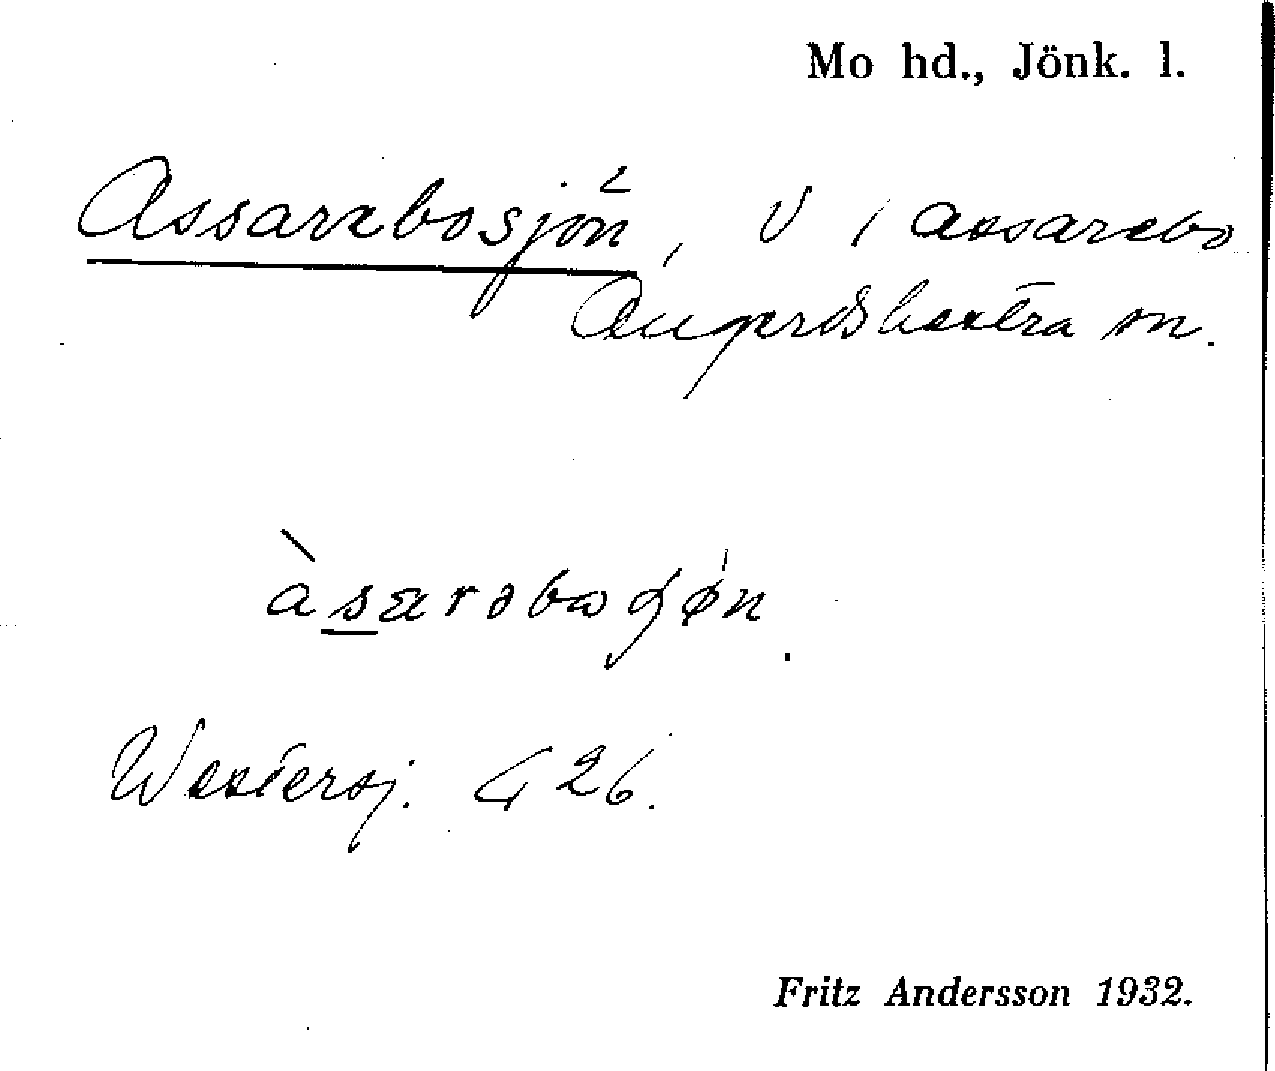 Mo hd., Jönk. l.
Assarebosjön, V i Assarebo
Angerdshestra sn.
àsarəbωʃø̀n.
Westersj. G 26.
Fritz Andersson 1932.